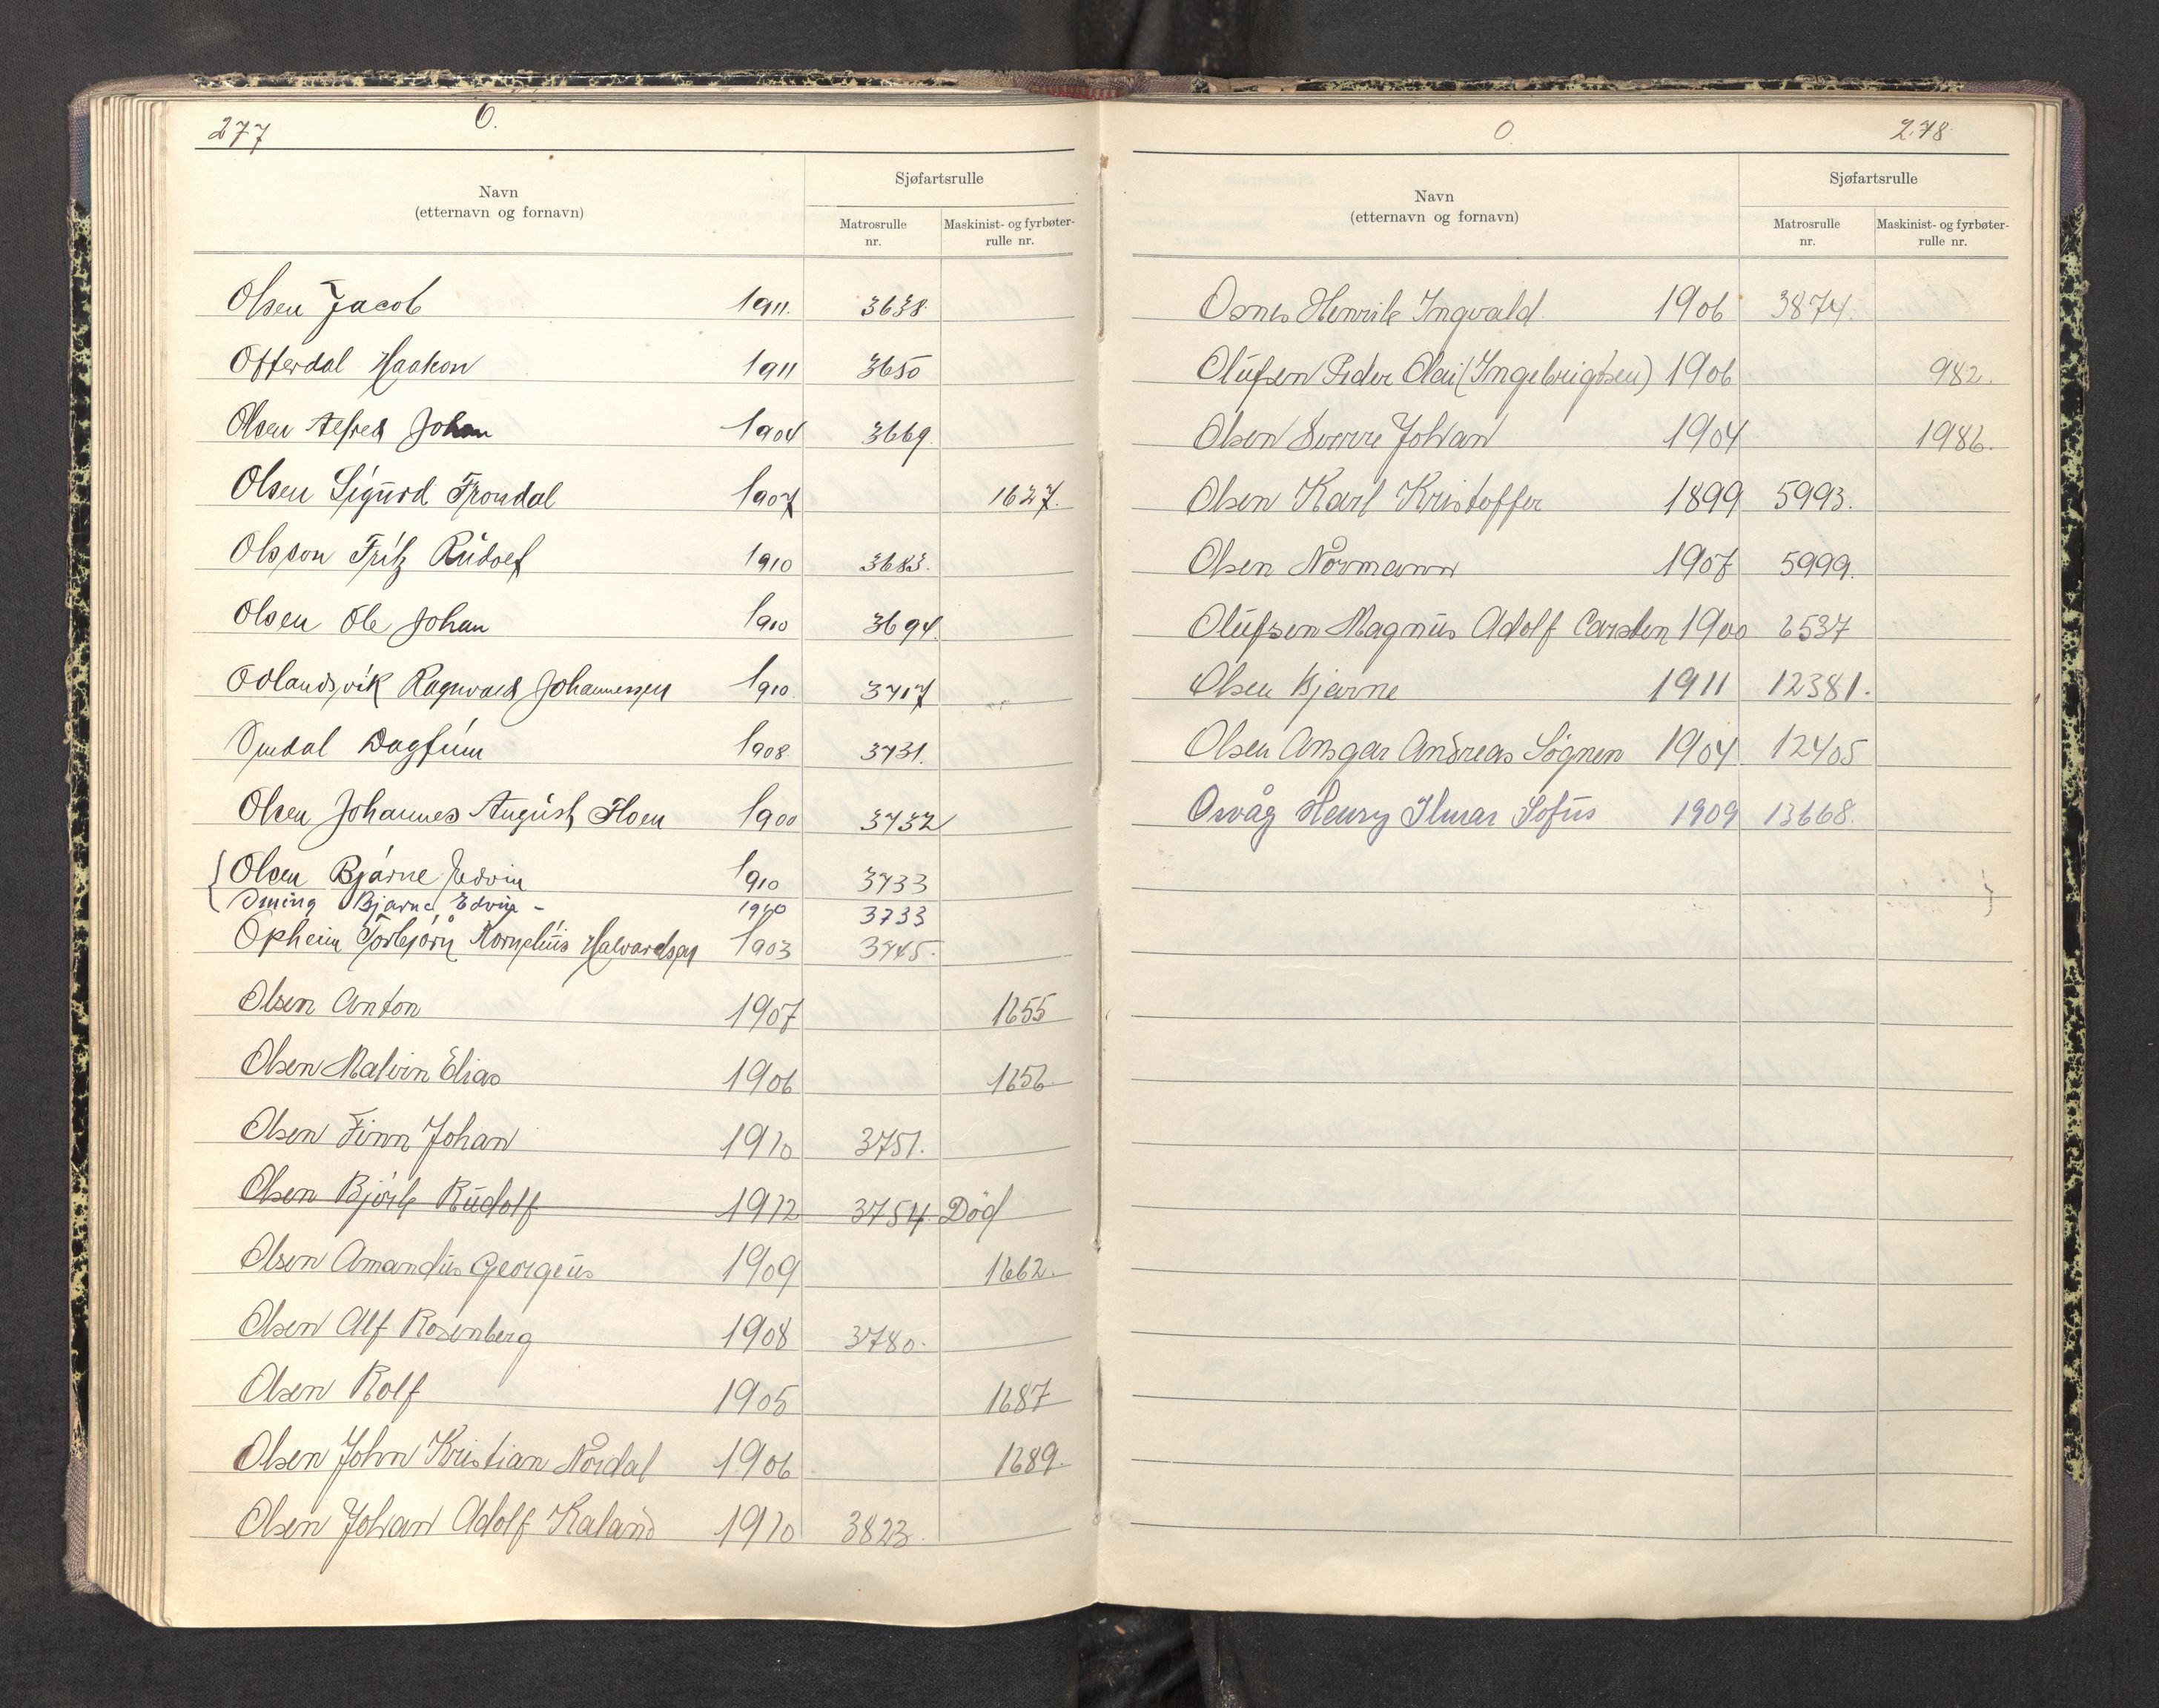 277 O.
Navn
(etternavn og fornavn)
Sjøfartsrulle
Matrosrulle
nr.
Maskinist- og fyrbøter-
rulle nr.
Olsen Jacob 1911. 3638.
Offerdal Haakon 1911 3650
Olsen Alfred Johan 1904 3669.
Olsen Sigurd Frondal 1907 1627.
Olsson Fritz Rudolf 1910 3683.
Olsen Ole Johan 1910 3694.
Odlandsvik Ragnvald Johannessen 1910. 3717
Omdal Dagfinn 1908. 3731.
Olsen Johannes August Floen 1900 3732
Olsen Bjarne Edvin 1910 3733
Bjarne Edvin - 1910 3733
Opheim Torbjørn Kornelius Halvardsen 1903 3745.
Olsen Anton 1907 1655
Olsen Malvin Elias 1906 1656
Olsen Finn Johan 1910 3751.
Olsen Björk Rudolf 1912 3754. Död
Olsen Amandus Georgeus 1909 1662.
Olsen Alf Rosenberg 1908 3780.
Olsen Rolf 1905 1687
Olsen John Kristian Nordal 1906 1689.
Olsen Johan Adolf Kaland 1910 3823.
O 278
Navn
(etternavn og fornavn)
Sjøfartsrulle
Matrosrulle
nr.
Maskinist- og fyrbøter-
rulle nr.
Osnes Henrik Ingvald. 1906 3874.
Olufsen Peder Olai (Ingebrigtsen) 1906 982.
Olsen Sverre Johan 1904 1986.
Olsen Karl Kristoffer 1899 5993.
Olsen Normann 1907 5999.
Olufsen Magnus Adolf Carsten 1900 2537
Olsen Bjarne 1911 12381.
Olsen Ansgar Andreas Søgnen 1904 12405
Osvåg Henry Ilmar Sofus 1909 13668.